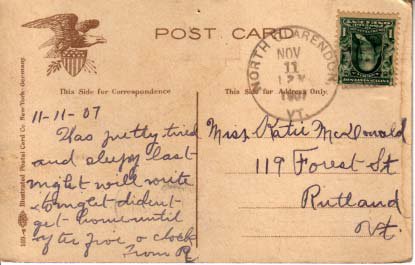 POST CARD
NORTH CLARENDON
NOV
11
1907
VT.
This Side for Correspondence
This Side for Address Only.
Illustrated Postal Card Co. New York-Germany.
11-11-07
Was pretty tired
and sleepy last
night will write
tonight dident
get home until
after five o clock
From R
Miss Katie McDonald
119 Forest St
Rutland
Vt.